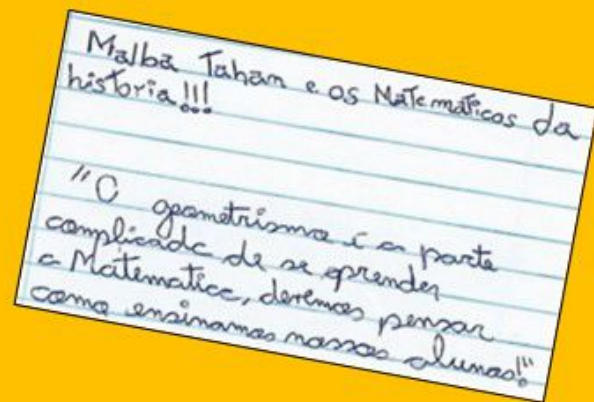 Malba Tahan e os Matematicos da
historia!!!
"O geometrismo é a parte
complicada de se aprender
a Matematica, devemos pensar
como ensinamos nossos alunos!"